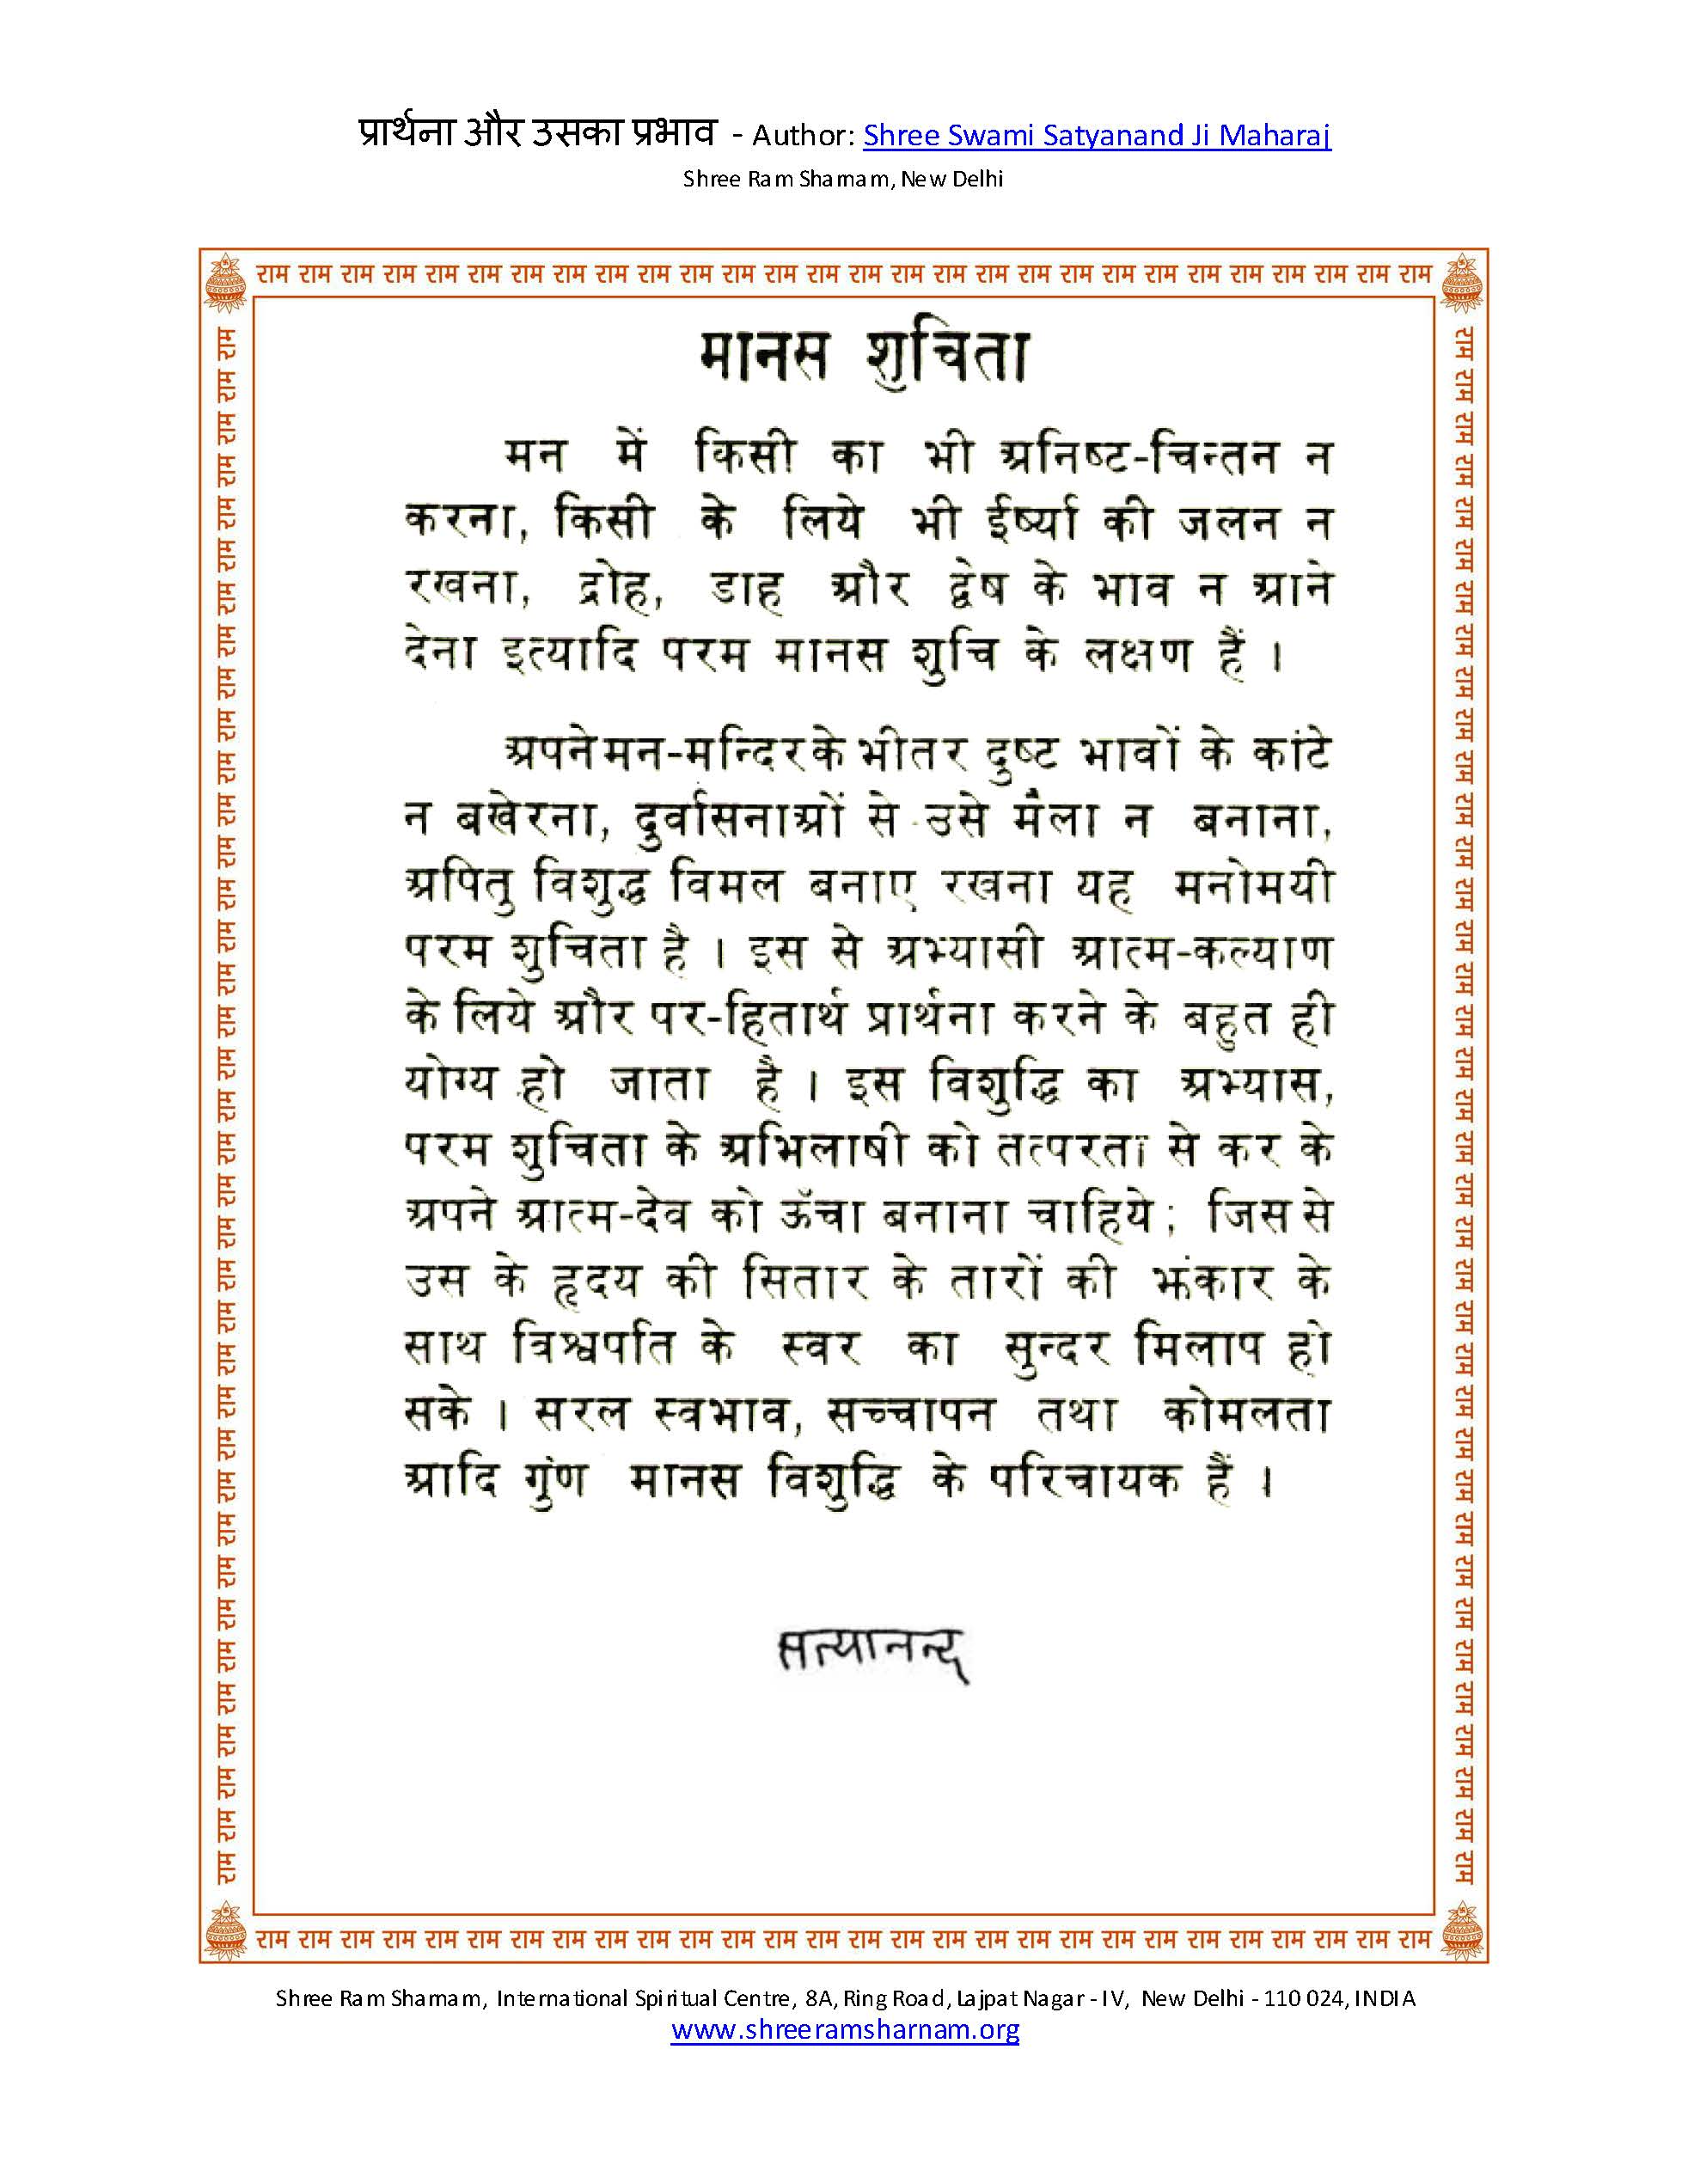 प्रार्थना और उसका प्रभाव - Author: Shree Swami Satyanand Ji Maharaj
Shree Ram Sharnam, New Delhi
राम राम राम राम राम राम राम राम राम राम राम राम राम राम राम राम राम राम राम राम राम राम राम राम राम राम राम राम
मानस शुचिता
मन में किसी का भी अनिष्ट-चिन्तन न
करना, किसी के लिये भी ईर्ष्या की जलन न
रखना, द्रोह, डाह और द्वेष के भाव न आने
देना इत्यादि परम मानस शुचि के लक्षण हैं ।
अपने मन-मन्दिर के भीतर दुष्ट भावों के कांटे
न बखेरना, दुर्वासनाओं से उसे मैला न बनाना,
अपितु विशुद्ध विमल बनाए रखना यह मनोमयी
परम शुचिता है । इस से अभ्यासी आत्म-कल्याण
के लिये और पर-हितार्थ प्रार्थना करने के बहुत ही
योग्य हो जाता है । इस विशुद्धि का अभ्यास,
परम शुचिता के अभिलाषी को तत्परता से कर के
अपने आत्म-देव को ऊँचा बनाना चाहिये; जिस से
उस के हृदय की सितार के तारों की झंकार के
साथ विश्वपति के स्वर का सुन्दर मिलाप हो
सके । सरल स्वभाव, सच्चापन तथा कोमलता
आदि गुण मानस विशुद्धि के परिचायक हैं ।
सत्यानन्द
राम राम राम राम राम राम राम राम राम राम राम राम राम राम राम राम राम राम राम राम राम राम राम राम राम राम राम राम
राम राम राम राम राम राम राम राम राम राम राम राम राम राम राम राम राम राम राम राम राम राम राम राम राम राम राम राम राम राम राम राम राम राम राम राम राम
राम राम राम राम राम राम राम राम राम राम राम राम राम राम राम राम राम राम राम राम राम राम राम राम राम राम राम राम राम राम राम राम राम राम राम राम राम
Shree Ram Sharnam, International Spiritual Centre, 8A, Ring Road, Lajpat Nagar - IV, New Delhi - 110 024, INDIA
www.shreeramsharnam.org